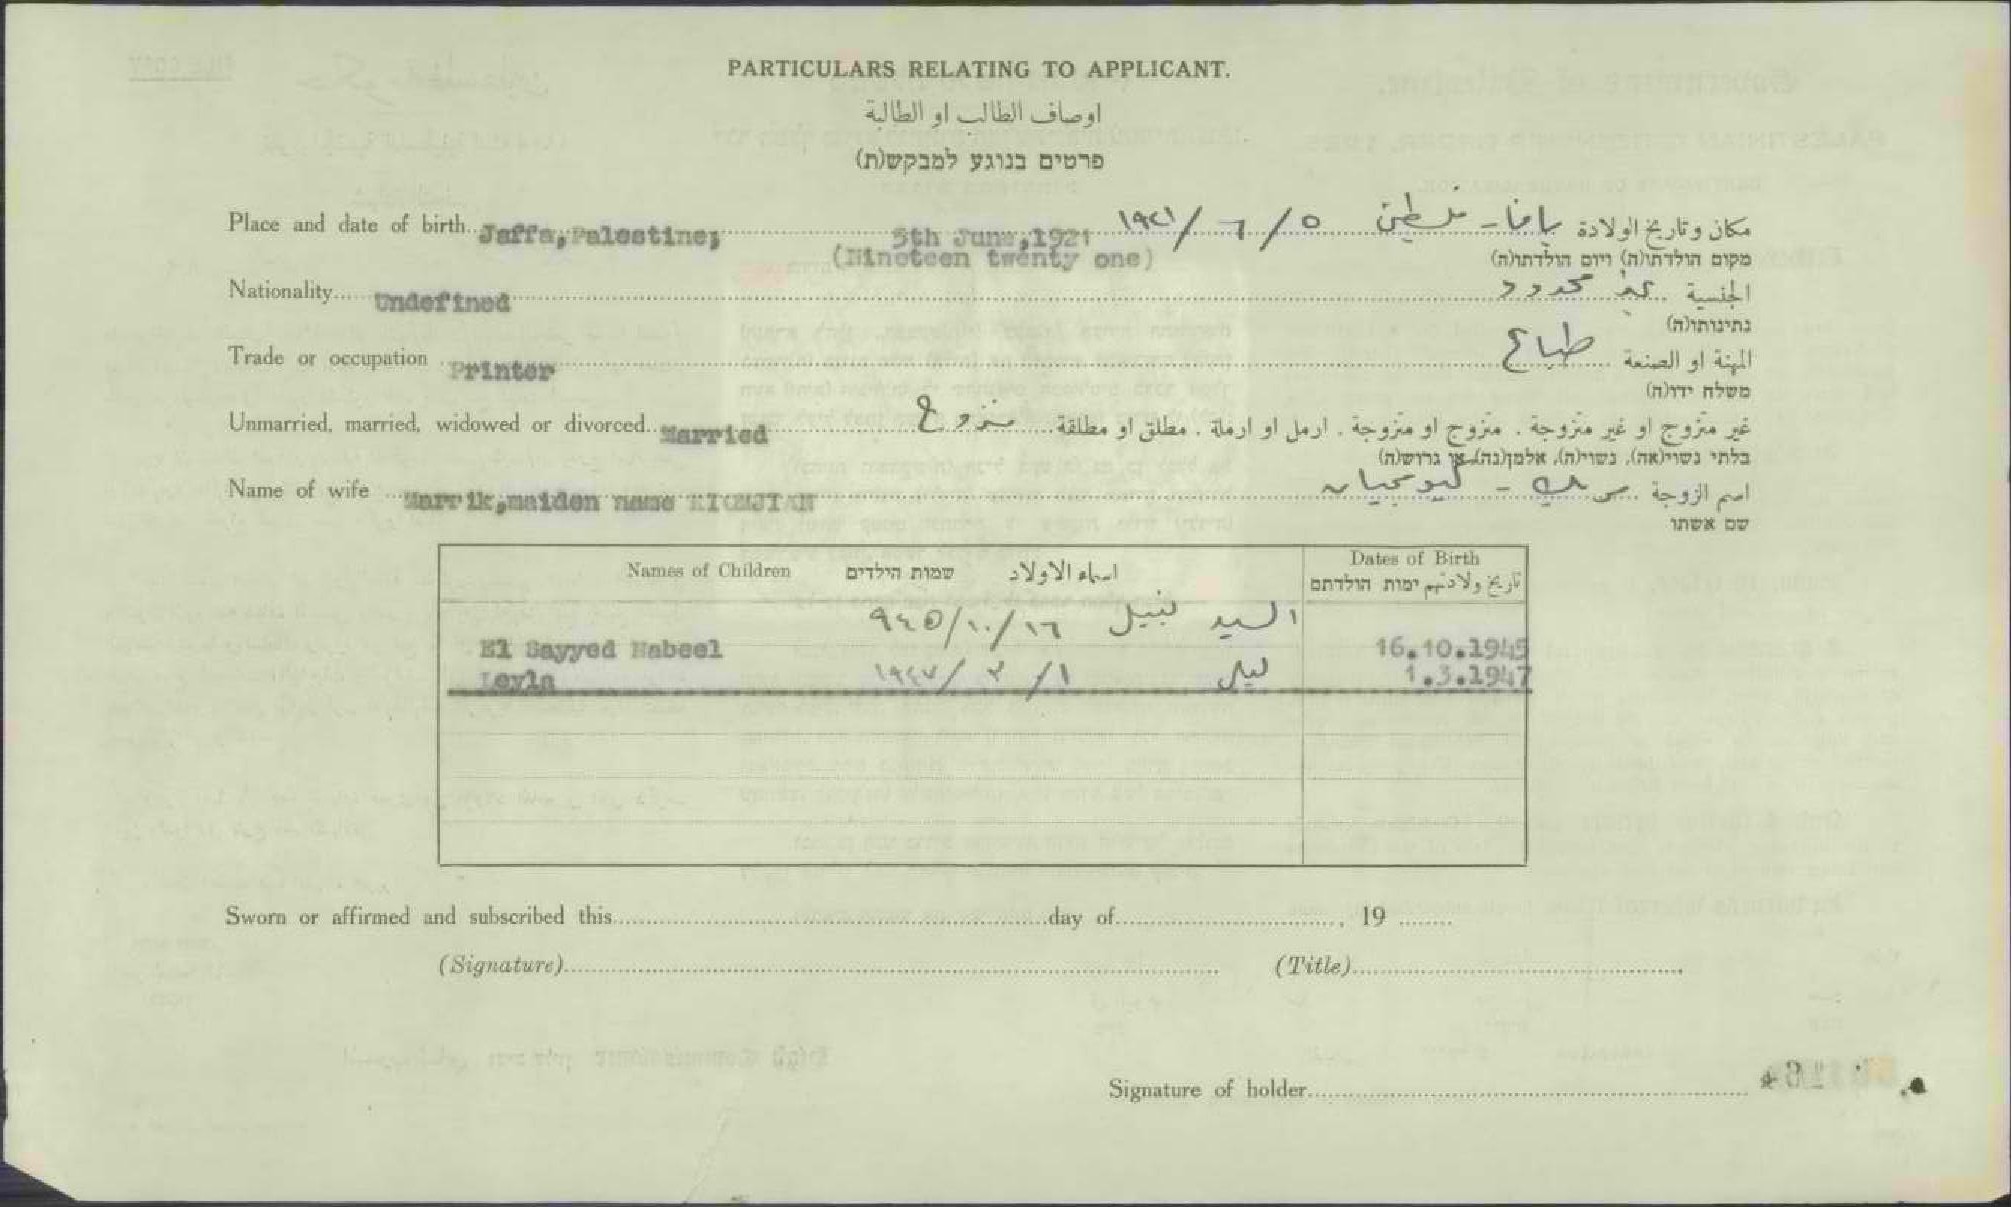 PARTICULARS RELATING TO APPLICANT.
اوصاف الطالب او الطالبة
פרטים בנוגע למבקש(ת)
Place and date of birth Jaffa, Palestine; 5th June, 1921 ١٩٢١/٦/٥ يافا - فلسطين مكان وتاريخ الولادة
(Nineteen twenty one) מקום הולדתו(ה) ויום הולדתו(ה)
Nationality Undefined غير محدود الجنسية
נתינותו(ה)
Trade or occupation Printer طباع المهنة او الصنعة
משלח ידו(ה)
Unmarried, married, widowed or divorced Married متزوج غير متزوج او غير متزوجة . متزوج او متزوجة . ارمل او ارملة . مطلق او مطلقة
בלתי נשוי(אה), נשוי(ה), אלמן(נה), או גרוש(ה)
Name of wife Marrik, maiden name KIOMJIAN اسم الزوجة
שם אשתו
Names of Children שמות הילדים اسماء الاولاد Dates of Birth
تاريخ ولادتهم ימות הולדתם
السيد نبيل ٩٤٥/١٠/١٦
El Sayyed Nabeel 16.10.1945
Leyla ليلى ١٩٤٧/٣/١ 1.3.1947
Sworn or affirmed and subscribed this day of , 19
(Signature) (Title)
Signature of holder